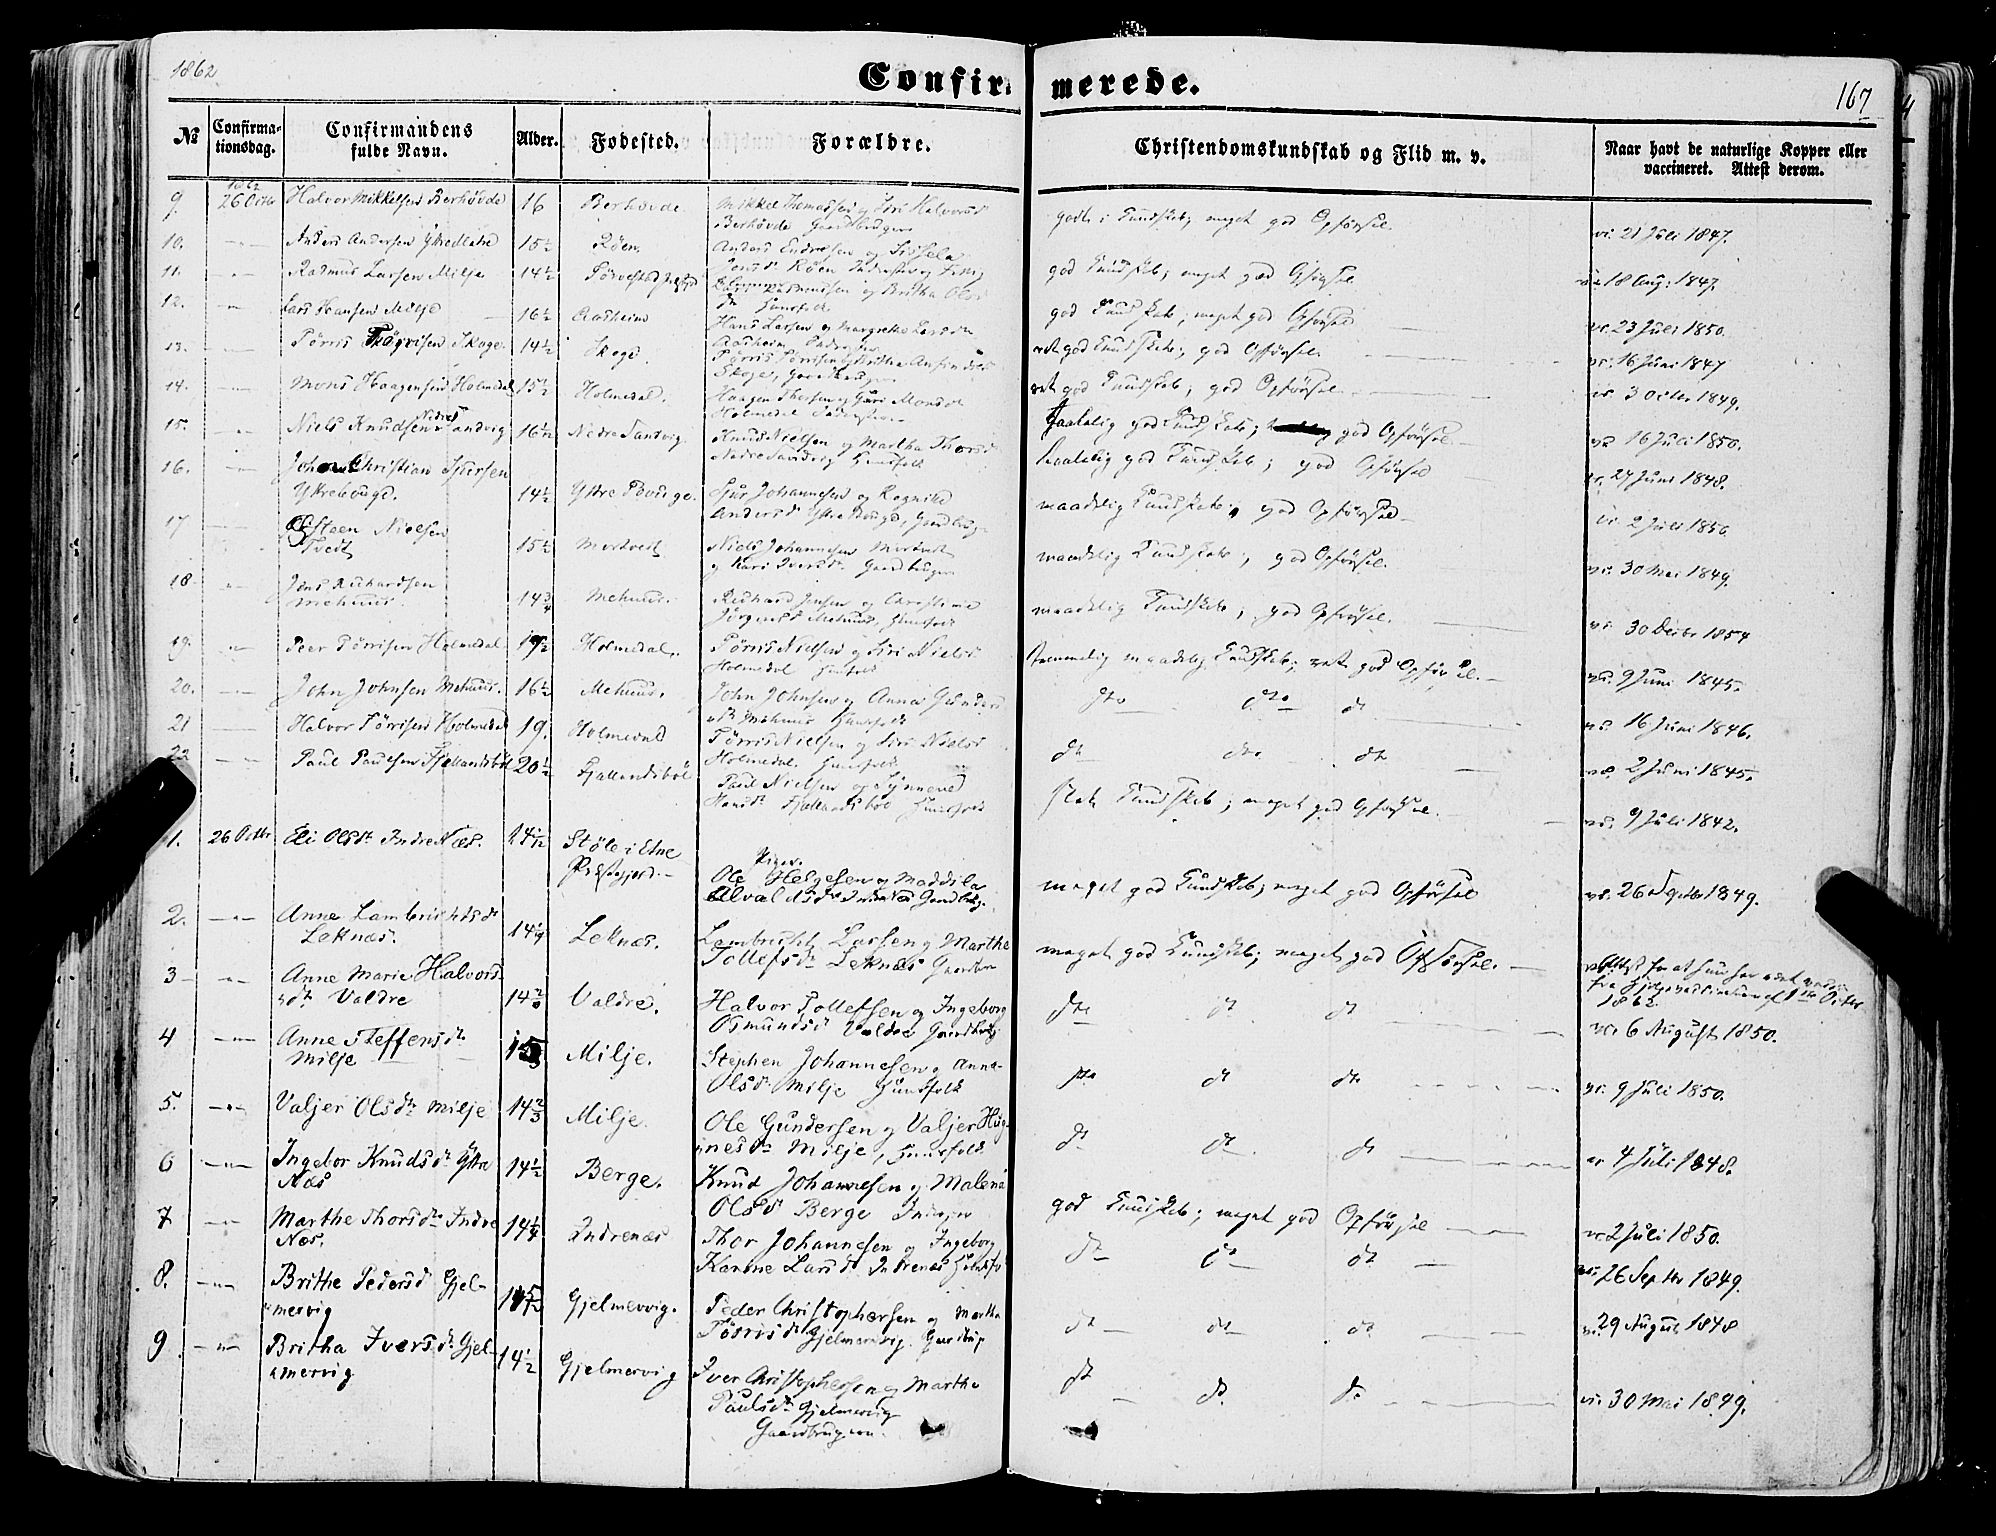 1862
Confirmerede.
167
№
Confirma-
tionsdag.
Confirmandens
fulde Navn.
Alder.
Fødested.
Forældre.
Christendomskundskab og Flid m. v.
Naar havt de naturlige Kopper eller
vaccineret. Attest derom.
9. 1862 26 Octbr Halvor Mikkelsen Berhövde 16 Berhövde Mikkel Thomassen og Siri Halvorsd
Berhövde
godt Kundskab; meget god Opförsel
vc. 21 Juli 1847.
10. Anders Andersen 15½ Röen Anders Endresen og Sissela
god Kundskab; meget god Opförsel
vc. 18 Aug: 1847.
11. Rasmus Larsen Milje 14½ Rasmussen og Britha Olsd
god Kundskab; meget god Opförsel
vc. 23 Juli 1850.
12. Lars Hansen Milje 16½ Aasheim Hans Larsen og Margrethe Larsdr
Aasheim
ret god Kundskab; god Opförsel
vc. 16 Juni 1847
13. Törris Skoge 14½ Skoge. Törris Törrisen og Britha
Skoge, Gaardbruger
ret god Kundskab; god Opförsel
vc. 3 Octbr 1849.
14. Mons Haagensen Holmedal 15½ Holmedal. Haagen og Guri Monsdr
Holmedal
god Kundskab; god Opförsel
vc. 16 Juli 1850.
15. Niels Knudsen Nedre Sandvig 16½ Nedre Sandvig. Knud Nielsen og Martha Thorsdr
Nedre Sandvig Huusfolk
god Kundskab; god Opförsel
vc. 27 Juni 1848.
16. Johan Christian Sjursen
Ytrebouge. 14½ Ytre Bouge. Sjur Johannesen og Ragnild
Andersdr Ytre Bouge, Gaardbrug
maadelig Kundskab; god Opförsel
vc. 2 Juli 1850
17 Osteen Nielsen
Tvedt 15½ Mortvedt Niels Johannesen Mortvedt
og Kari Iversdr Gaardbruger
maadelig Kundskab; god Opförsel.
vc. 30 Mai 1849.
18. Jens Richardsen
Mehuus. 14¾ Mehuus. Richard Jensen og Christine
Jörgensd Mehuus, Huusfolk
maadelig Kundskab; god Opförsel.
vc. 30 Decbr 1854
19. Peer Törrisen Holmedal Holmedal. Törris Nielsen og Siri Nielsd
Holmedal Huusfolk
temmelig maadelig Kundskab; ret god Opförsel.
vc. 9 Juni 1845.
20. John Johnsen Mehuus. 16½ Mehuus. John Johnsen og Anna
Mehuus Huusfolk
dto dto dt
vc. 16 Juni 1846.
21 Halvor Törrisen Holmedal 19. Holmedal Törris Nielsen og Siri Nielsd
Holmedal. Huusfolk
dt dto dt
vc. 2 Juni 1845.
22 Paul Paulsen Fjellandsböl 20½ Fjellandsböl Paul Nielsen og Synneva
Hansdr Fjellandsböl Huusfolk
slet Kundskab; meget god Opförsel.
vc. 9 Juli 1842.
Piger.
1. 26 Octbr Eli Olsdr Indre Næs. 14 1/12 Stöle i Etne
Præstegjeld. Ole Helgesen og Maddila
Indre Næs Gaardbrug.
meget god Kundskab; meget god Opförsel
vc. 26 Septbr 1849.
2. Anne Lambrichtsdr
Leknæs. Leknæs. Lambricht Larsen og Martha
Tollefsdr Leknæs Gaardbr
meget god Kundskab; meget god Opförsel.
Attest for at hun har været vaccin
1862
3 Anne Marie Halvors
dr Valdre Valdre. Halvor Tollefsen og Ingeborg
Osmundsd Valdre Gaardbrug
dt dt dt
vc. 6 August 1850.
4 Anne Steffensdr
Milje Milje. Stephen Johannesen og Anna
Olsdr Milje Huusfolk
dto dt dt
vc. 9 Juli 1850.
5. Valjer Olsdr Milje 14⅔ Milje. Ole Gundersen og Valjer Hag
nesdr Milje, Huusfolk
dt dt dt
vc. 4 Juli 1848.
6 Ingebor Knudsdr Ytre
Næs 14½ Berge. Knud Johannesen og Malena
Olsdr Berge
god Kundskab; meget god Opförsel
vc. 2 Juli 1850.
7 Marthe Thorsdr Indre
Næs. 14¼ Indrenæs Thor Johannesen og Ingeborg
Karine Larsdr Indrenæs Huusfo
dt dt dt
vc. 26 Septbr 1849.
8. Brithe Pedersd Gjel-
mervig Gjelmervig. Peder Christophersen og Martha
Törrisdr Gjelmervig. Gaardbrug
dt dt dt
vc. 29 August 1848
9 Britha Iversdr Gjel-
mervig 14½ Gjelmervig Iver Christophersen og Martha
Paulsdr Gjelmervig
Gaardbrugere.
dt dt dt
vc. 30 Mai 1849.